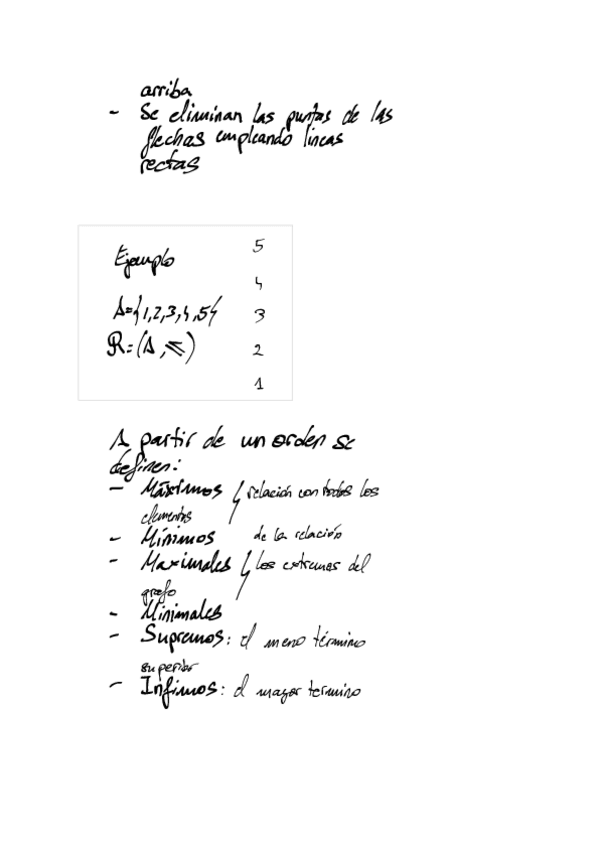 arriba
- Se eliminan las puntas de las
flechas empleando lineas
rectas
Ejemplo
A={1,2,3,4,5}
R=(A,≤)
5
4
3
2
1
A partir de un orden se
definen:
- Máximos } relación con todos los
elementos
- Mínimos de la relación
- Maximales } los extremos del
grafo
- Minimales
- Supremos: el meno término
superior
- Infimos: el mayor termino